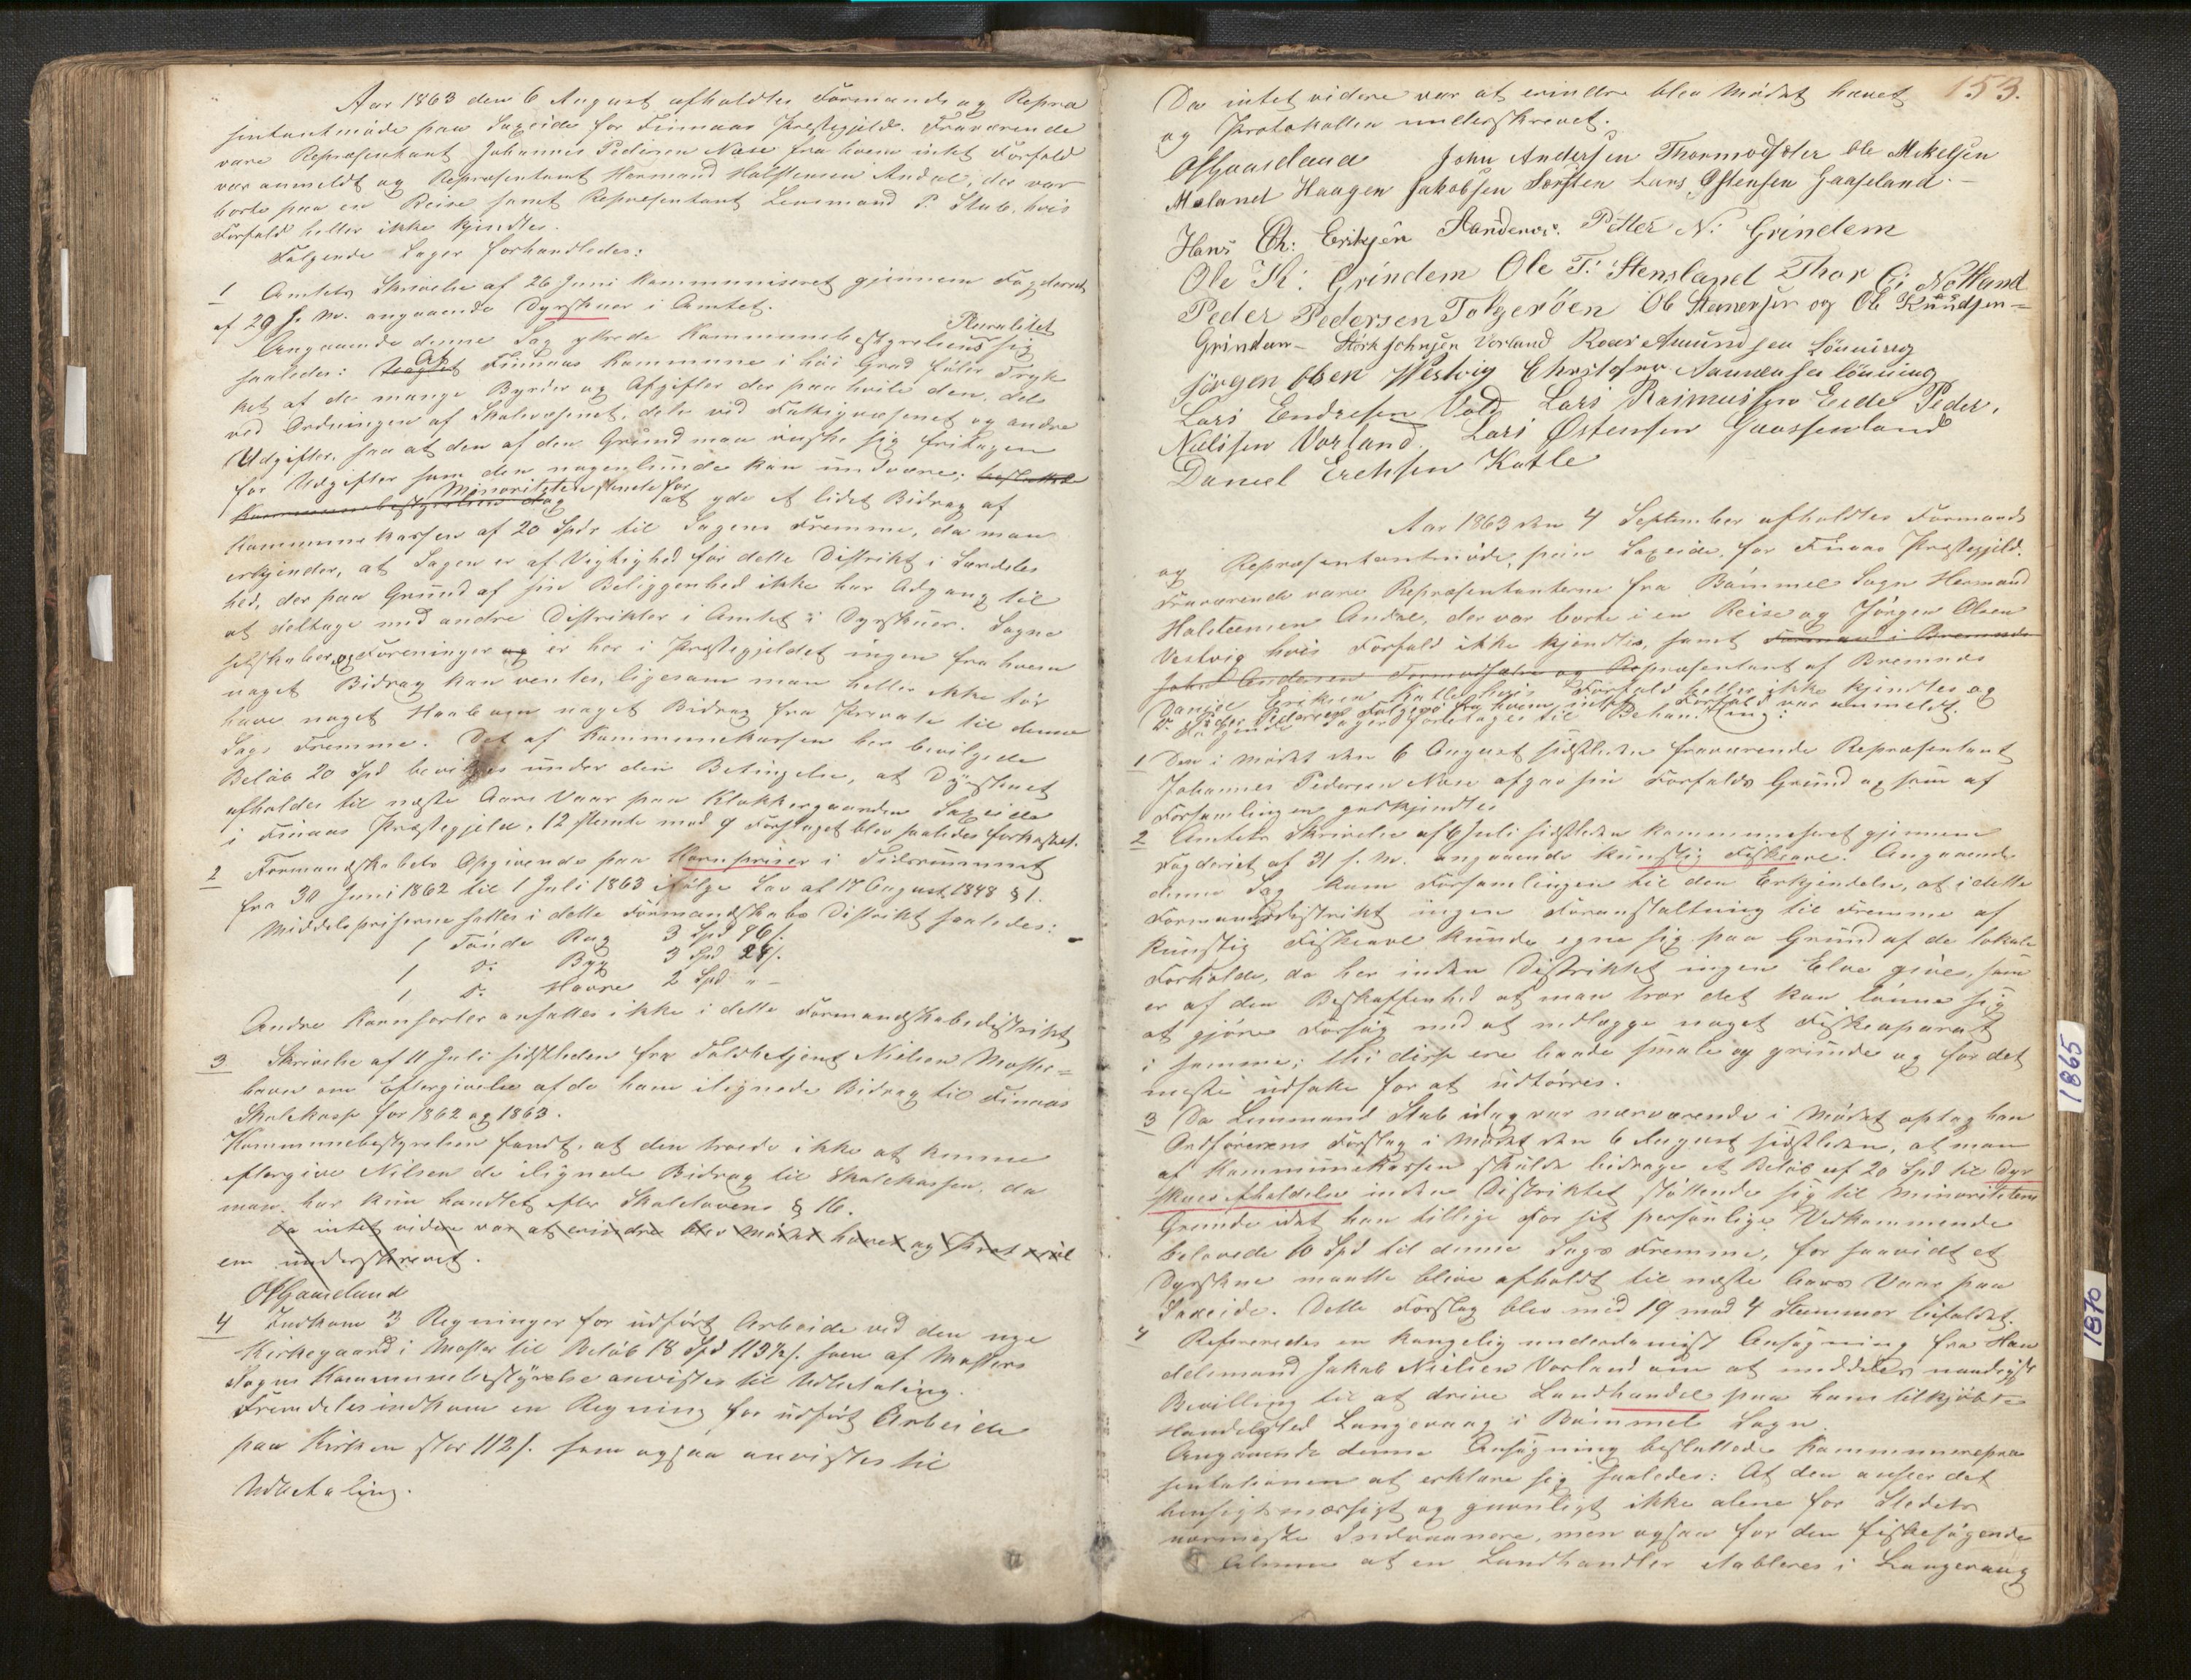 Aar 1863 den 6 August afholdtes Formands og Repræ
sentantmøde paa Saxeide for Finnaas Præstegjeld. Fraværende
vare Repræsentant Johannes Pedersen Næse fra hvem intet Forfald
var anmeldt og Repræsentant Hermand Halstensen Andal, der var
borte paa en Reise samt Repræsentant Lensmand P. Stub, hvis
Forfald heller ikke kjendtes.
Følgende Sager forhandledes:
1 Amtets Skrivelse af 26 Juni kommuniseret gjennem Fogderiet
af 29 s. M. angaaende Dyrskuer i Amtet.
Angaaende denne Sag yttrede Kommunebestyrelsens Pluralitet sig
saaledes: At Finnaas Kommune i høi Grad føler Tryk
ket af de mange Byrder og Afgifter der paa hvile den, dels
ved Ordningen af Skolevæsenet, dels ved Fattigvæsenet og andre
Udgifter, saa at den af den Grund maa ønske sig fritagen
for Udgifter som den nogenlunde kan undvære; besluttede
Kommunebestyrelsen dog Minoriteten stemte for at yde et lidet Bidrag af
Kommunekassen af 20 Spdr til Sagens Fremme, da man
erkjender, at Sagen er af Vigtighed for dette Distrikt i Særdeles
hed, der paa Grund af sin Beliggenhed ikke har Adgang til
at deltage med andre Distrikter i Amtet i Dyrskuer. Sogne
selskaber og Foreninger og er her i Præstegjeldet ingen fra hvem
noget Bidrag kan ventes, ligesom man heller ikke tør
have noget Haab om noget Bidrag fra Private til denne
Sags Fremme. Det af Kommunekassen her bevilgede
Beløb 20 Spd bevilges under den Betingelse, at Dyrskuet
afholdes til næste Aars Vaar paa Klokkergaarden Saxeide
i Finaas Præstegjeld. 12 stemte mod 9 Forslaget blev saaledes forkastet.
2 Formandskabets Opgivende paa Kornpriser i Tidsrummet
fra 30 Juni 1862 til 1 Juli 1863 ifølge Lov af 17 August 1848 § 1.
Middelspriserne sattes i dette Formandskabs Distrikt saaledes:
1 Tønde Rug 3 Spd 96 s.
1 d: Byg 3 Spd 24 s.
1 d: Havre 2 Spd " -
Andre Kornsorter ansattes ikke i dette Formandskabsdistrikt
3 Skrivelse af 11 Juli sidstleden fra Toldbetjent Nielsen Moster=
havn om Eftergivelse af de ham ilignede Bidrag til Finnaas
Skolekasse for 1862 og 1863.
Kommunebestyrelsen fandt, at den troede ikke at kunne
eftergive Nilsen de ilignede Bidrag til Skolekassen, da
man har kun handlet efter Skolelovens § 16.
Da intet videre var at erindre blev Mødet hævet og Protokol
en underskrevet.
OGaaseland
4 Indkom 3 Regninger for udført Arbeide ved den nye
Kirkegaard i Moster til Beløb 18 Spd 113½ s. som af Mosters
Sogns Kommunebestyrelse anvistes til Udbetaling.
Fremdeles indkom en Regning for udført Arbeide
paa Kirken stor 112 s. som ogsaa anvistes til
Udbetaling.
153.
Da intet videre var at erindre blev Mødet hævet
og Protokollen underskrevet.
OGaaseland John Andersen Thormodsæter Ole Mikelsen
Meland Haagen Jakobsen Sørsten Lars Østensen Gaaseland.-
Hans Ch: Eriksen Petter N: Grindem
Ole Th: Grindem Ole T: Stensland Thor C: Notland
Peder Pedersen Tolgerøen Ob Stenersen og Ole Knudsen=
Grindem - Størk Johnsen Vorland Roar Amundsen Lønning
Jørgen Olsen Westvig Christofer Nannensen Lønning
Lars Endresen Vold Lars Rasmussen Eide Peder,
Nielsen Vorland. Lars Østensen Gaassenland
Daniel Erchsen Katle
Aar 1863 den 4 September afholdtes Formands
og Repræsentantmøde, paa Saxeide, for Finaas Præstegjeld.
Fraværende vare Repræsentanterne fra Bømmel Sogn Hermand
Halsteensen Andal, der var borte i en Reise og Jørgen Olsen
Vestvig hvis Forfald ikke kjendtes, samt Formand i Bremnæs
John Andersen Tormodsæter og Repræsentant af Bremnæs
Daniel Eriksen Katle hvis Forfald heller ikke kjendtes og
D. Peder Pedersen Folgerø fra hvem intet Forfald var anmeldt.
Følgende Sager foretoges til Behandling:
1 Den i Mødet den 6 August sidstleden fraværende Repræsentant
Johannes Pedersen Næse afgav sin Forfalds Grund og som af
Forsamlingen godkjendtes
2 Amtets Skrivelse af 6 Juli sidstleden kommuniseret gjennem
Fogderiet af 31 s. M. angaaende kunstig Fiskeavl. Angaaende
denne Sag kom Forsamlingen til den Erkjendelse, at i dette
Formandsdistrikt ingen Foranstaltning til Fremme af
kunstig Fiskeavl kunde egne sig paa Grund af de lokale
Forholde, da her inden Distriktet ingen Elve gives, som
er af den Beskaffenhed at man tror det kan lønne sig
at gjøre Forsøg med at nedlægge noget Fiskeaparat
i samme; thi disse ere baade smale og grunde og for det
meste udsatte for at udtørres.
3 Da Lensmand Stub idag var nærværende i Mødet optog han
Ordførerens Forslag i Mødet den 6 August sidstleden, at man
af Kommunekassen skulde bidrage et Beløb af 20 Spd til Dyr
skues Afholdelse inden Distriktet støttende sig til Minoritetens
Grunde idet han tillige for sit personlige Vedkommende
belovede 10 Spd til denne Sags Fremme, for saavidt et
Dyrskue maatte blive afholdt til næste Aars Vaar paa
Saxeide. Dette Forslag blev med 19 mod 4 Stemmer bifaldet.
4 Refereredes en kongelig underdanigst Ansøgning fra Han
delsmand Jakob Nielsen Vorland om at meddeles naadigst
Bevilling til at drive Landhandel paa hans tilkjøbte
Handelssted Langevaag i Bømmel Sogn
Angaaende denne Ansøgning besluttede Kommunerepræ
sentationen at erklære sig saaledes: At den anseer det
hensigtsmæssigt og gavnligt ikke alene for Stedets
nærmeste Indvaanere, men ogsaa for den fiskesøgende
Almue at en Landhandler etableres i Langevaag
1865
1870